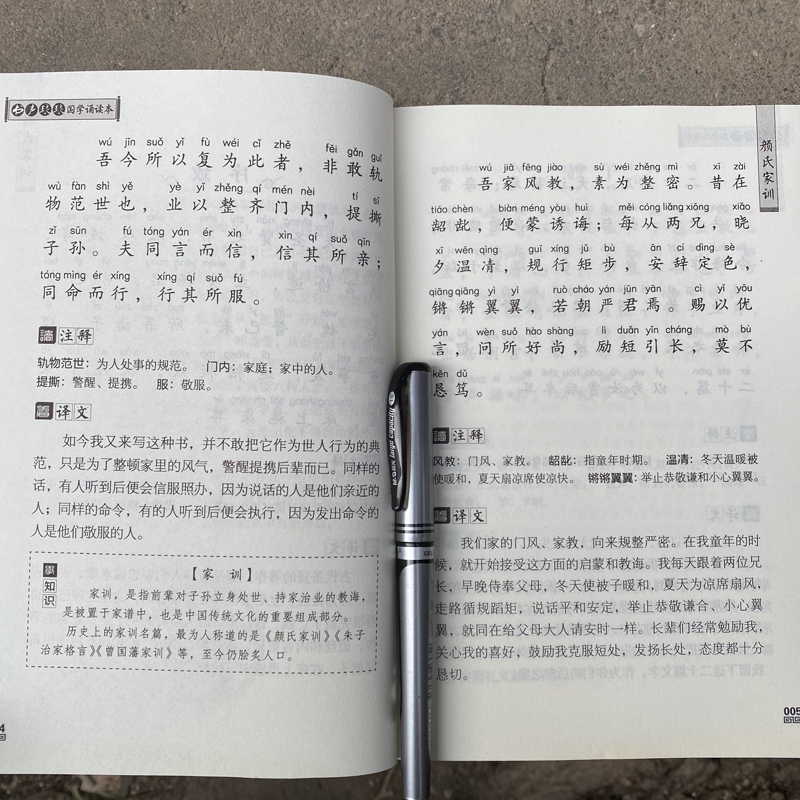 国学诵读本
wú jīn suǒ yǐ fù wéi cǐ zhě fēi gǎn guǐ
吾今所以复为此者，非敢轨
wù fàn shì yě yè yǐ zhěng qí mén nèi tí sī
物范世也，业以整齐门内，提撕
zǐ sūn fú tóng yán ér xìn xìn qí suǒ qīn
子孙。夫同言而信，信其所亲；
tóng mìng ér xíng xíng qí suǒ fú
同命而行，行其所服。
注释
轨物范世：为人处事的规范。 门内：家庭；家中的人。
提撕：警醒、提携。 服：敬服。
译文
如今我又来写这种书，并不敢把它作为世人行为的典
范，只是为了整顿家里的风气，警醒提携后辈而已。同样的
话，有人听到后便会信服照办，因为说话的人是他们亲近的
人；同样的命令，有的人听到后便会执行，因为发出命令的
人是他们敬服的人。
知识
【家 训】
家训，是指前辈对子孙立身处世、持家治业的教诲，
是被置于家谱中，也是中国传统文化的重要组成部分。
历史上的家训名篇，最为人称道的是《颜氏家训》《朱子
治家格言》《曾国藩家训》等，至今仍脍炙人口。
4
颜氏家训
wú jiā fēng jiào sù wéi zhěng mì xī zài
吾家风教，素为整密。昔在
tiáo chèn biàn méng yòu huì měi cóng liǎng xiōng xiǎo
龆龀，便蒙诱诲；每从两兄，晓
xī wēn qìng guī xíng jǔ bù ān cí dìng sè
夕温凊，规行矩步，安辞定色，
qiāng qiāng yì yì ruò cháo yán jūn yān cì yǐ yōu
锵锵翼翼，若朝严君焉。赐以优
yán wèn suǒ hào shàng lì duǎn yǐn cháng mò bù
言，问所好尚，励短引长，莫不
kěn dǔ
恳笃。
注释
风教：门风、家教。 龆龀：指童年时期。 温凊：冬天温暖被
使暖和，夏天扇凉席使凉快。 锵锵翼翼：举止恭敬谦和小心翼翼。
译文
我们家的门风、家教，向来规整严密。在我童年的时
候，就开始接受这方面的启蒙和教诲。我每天跟着两位兄
长，早晚侍奉父母，冬天使被子暖和，夏天为凉席扇风，
走路循规蹈矩，说话平和安定，举止恭敬谦合、小心翼
翼，就同在给父母大人请安时一样。长辈们经常勉励我，
关心我的喜好，鼓励我克服短处，发扬长处，态度都十分
恳切。
005
large capacity